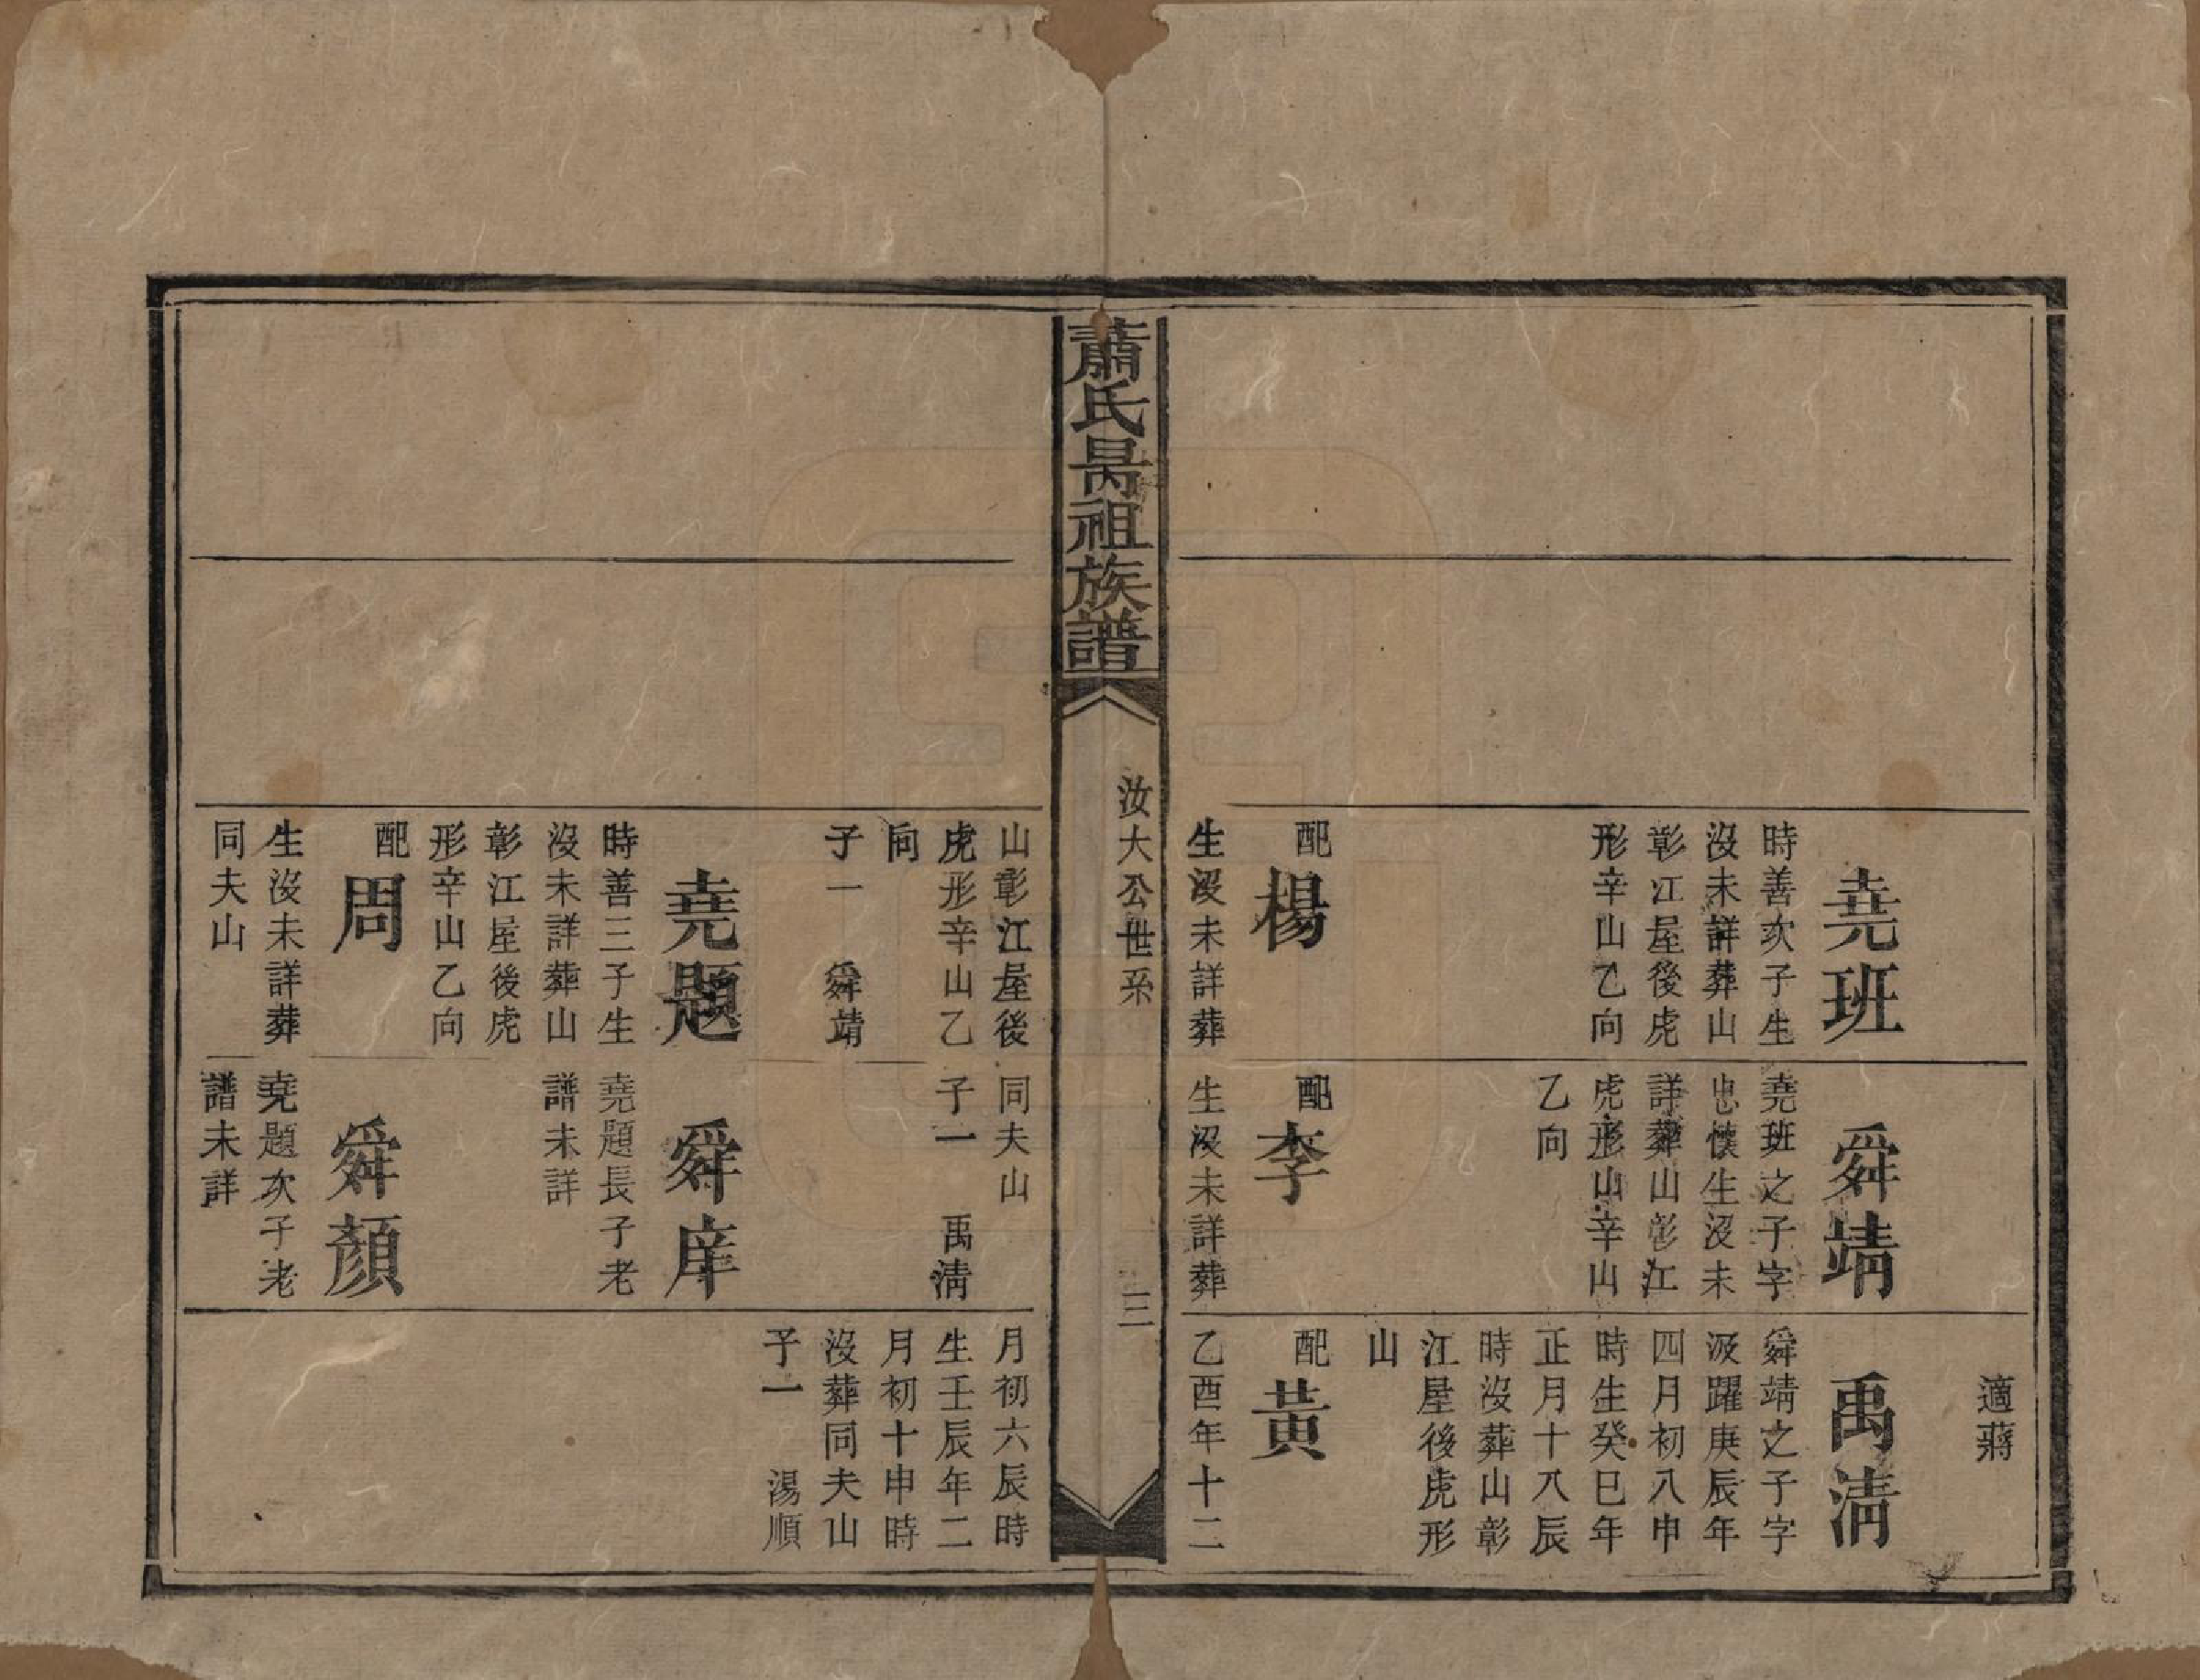 堯班
時善次子生
沒未詳葬山
彰江屋後虎
形辛山乙向
配
楊
生沒未詳葬
舜靖
堯班之子字
忠懷生沒未
詳葬山彰江
虎形山辛山
乙向
配
李
生沒未詳葬
適蔣
禹清
舜靖之子字
汲躍庚辰年
四月初八申
時生癸巳年
正月十八辰
時沒葬山彰
江屋後虎形
山
配
黃
乙酉年十二
蕭氏
祖族譜
汝大公世系
三
山彰江屋後
虎形辛山乙
向
子一 舜靖
堯題
時善三子生
沒未詳葬山
彰江屋後虎
形辛山乙向
配
周
生沒未詳葬
同夫山
同夫山
子一 禹清
舜庠
堯題長子老
譜未詳
舜顏
堯題次子老
譜未詳
月初六辰時
生壬辰年二
月初十申時
沒葬同夫山
子一 湯順